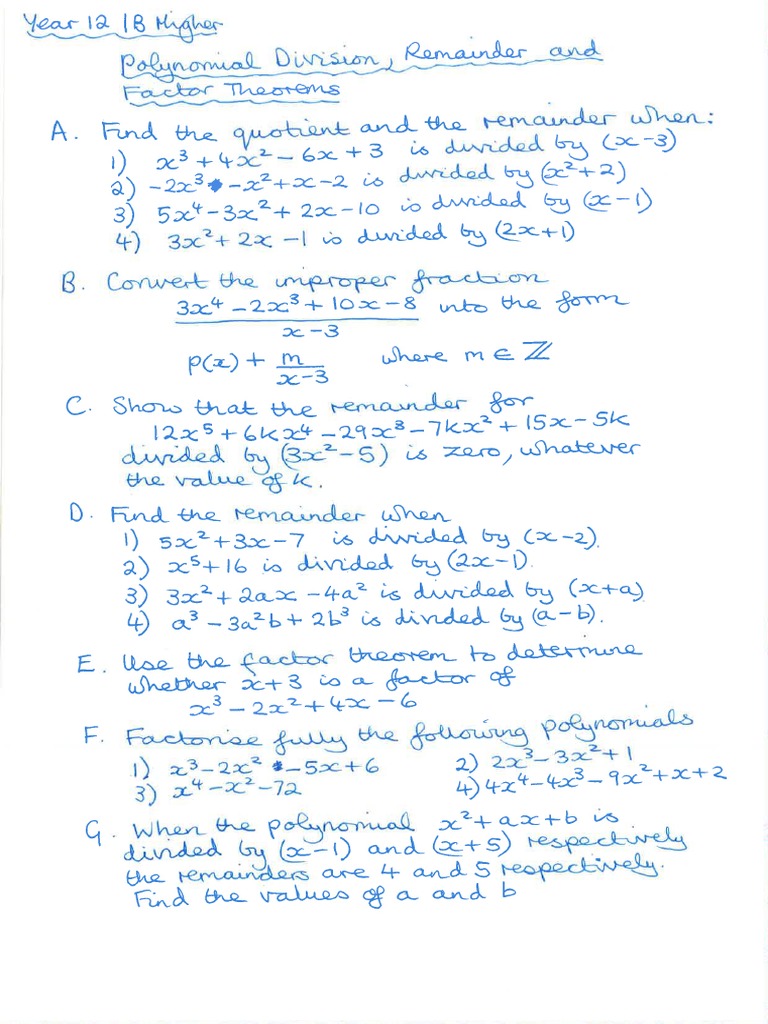 Year 12 IB Higher
Polynomial Division, Remainder and
Factor Theorems
A. Find the quotient and the remainder when:
1) x³ + 4x² - 6x + 3 is divided by (x-3)
2) -2x³ - x² + x - 2 is divided by (x²+2)
3) 5x⁴ - 3x² + 2x - 10 is divided by (x-1)
4) 3x² + 2x - 1 is divided by (2x+1)
B. Convert the improper fraction
3x⁴ - 2x³ + 10x - 8 into the form
x-3
p(x) + m where m ∈ ℤ
x-3
C. Show that the remainder for
12x⁵ + 6kx⁴ - 29x³ - 7kx² + 15x - 5k
divided by (3x² - 5) is zero, whatever
the value of k.
D. Find the remainder when
1) 5x² + 3x - 7 is divided by (x-2).
2) x⁵ + 16 is divided by (2x-1).
3) 3x² + 2ax - 4a² is divided by (x+a)
4) a³ - 3a²b + 2b³ is divided by (a-b).
E. Use the factor theorem to determine
whether x+3 is a factor of
x³ - 2x² + 4x - 6
F. Factorise fully the following polynomials
1) x³ - 2x² - 5x + 6 2) 2x³ - 3x² + 1
3) x⁴ - x² - 72 4) 4x⁴ - 4x³ - 9x² + x + 2
G. When the polynomial x² + ax + b is
divided by (x-1) and (x+5) respectively
the remainders are 4 and 5 respectively.
Find the values of a and b